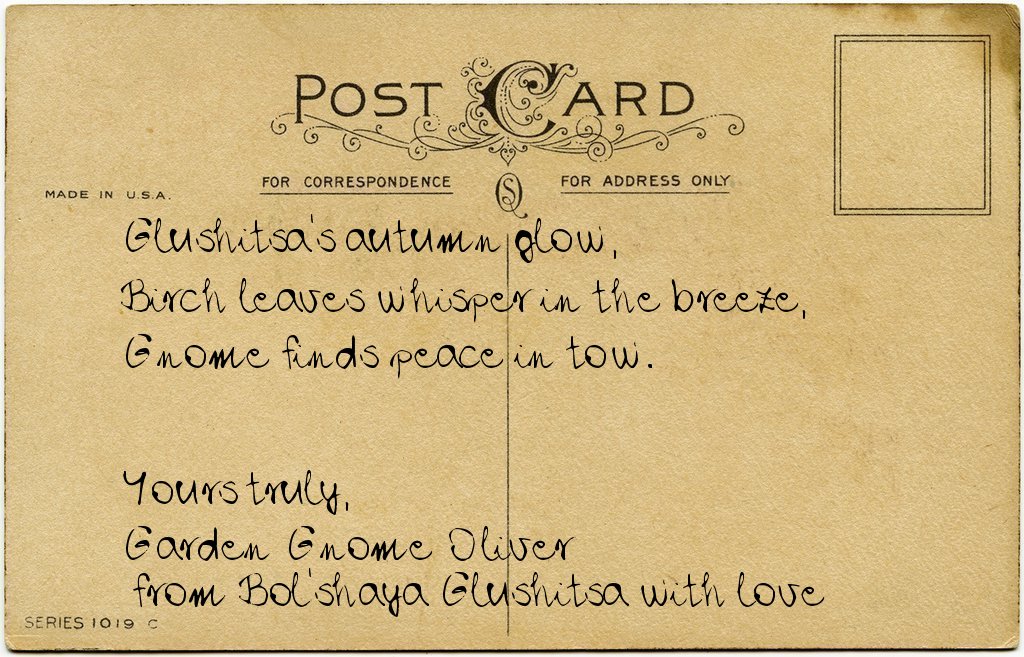 POST CARD
FOR CORRESPONDENCE
FOR ADDRESS ONLY
MADE IN U.S.A.
Glushitsa's autumn glow,
Birch leaves whisper in the breeze,
Gnome finds peace in tow.
Yours truly,
Garden Gnome Oliver
from Bol'shaya Glushitsa with love
SERIES 1019 C